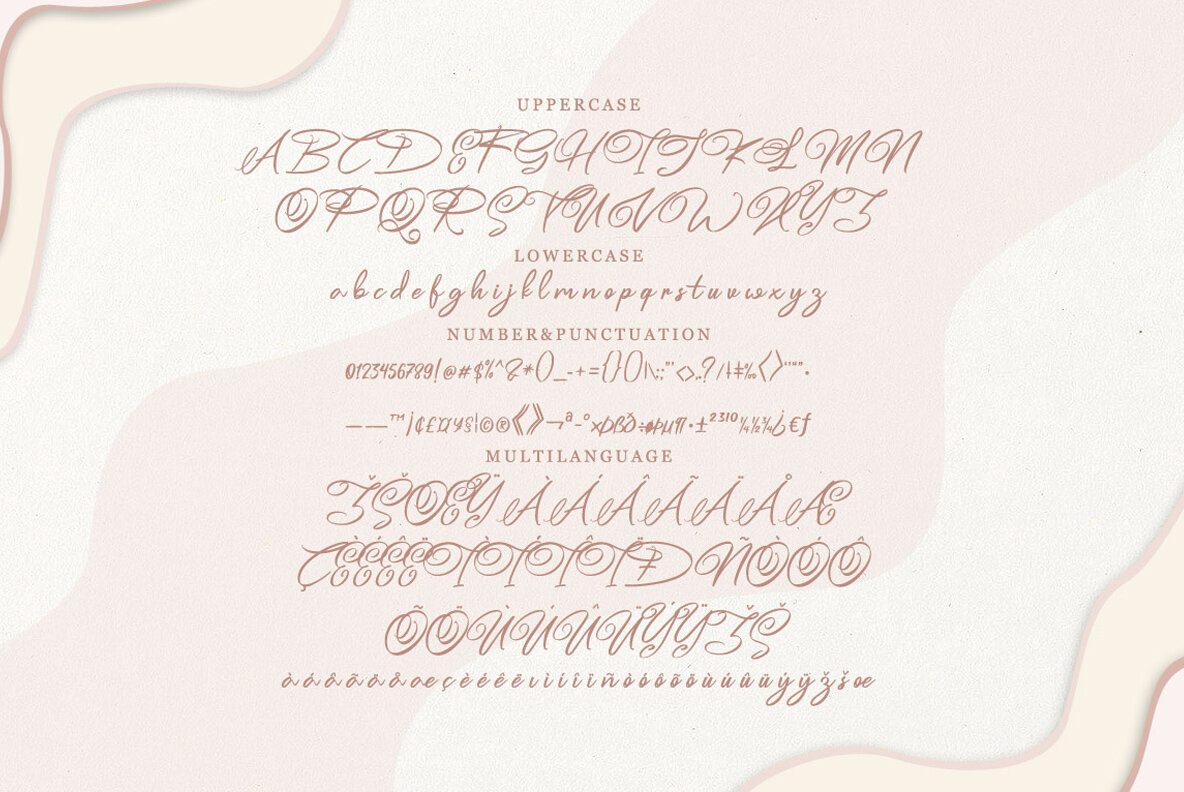 UPPERCASE
ABCDEFGHIJKLMN
OPQRSTUVWXYZ
LOWERCASE
abcdefghijklmnopqrstuvwxyz
NUMBER&PUNCTUATION
0123456789!@#$%^&*()_-+={}[]|\:;"'<>,.?/|‡‰‹›"“”•
——™¡¢£¤¥§¦©®«»¬ª-°×ÞßÐ÷øþµ¶·±²³¹º¼½¾¿€ƒ
MULTILANGUAGE
ŽŠŒŸÀÁÂÃÄÅÆ
ÇÈÉÊËÌÍÎÏÐÑÒÓÔ
ÕÖÙÚÛÜÝŸŽŠ
àáâãäåæçèéêëìíîïñòóôõöùúûüýÿžšœ